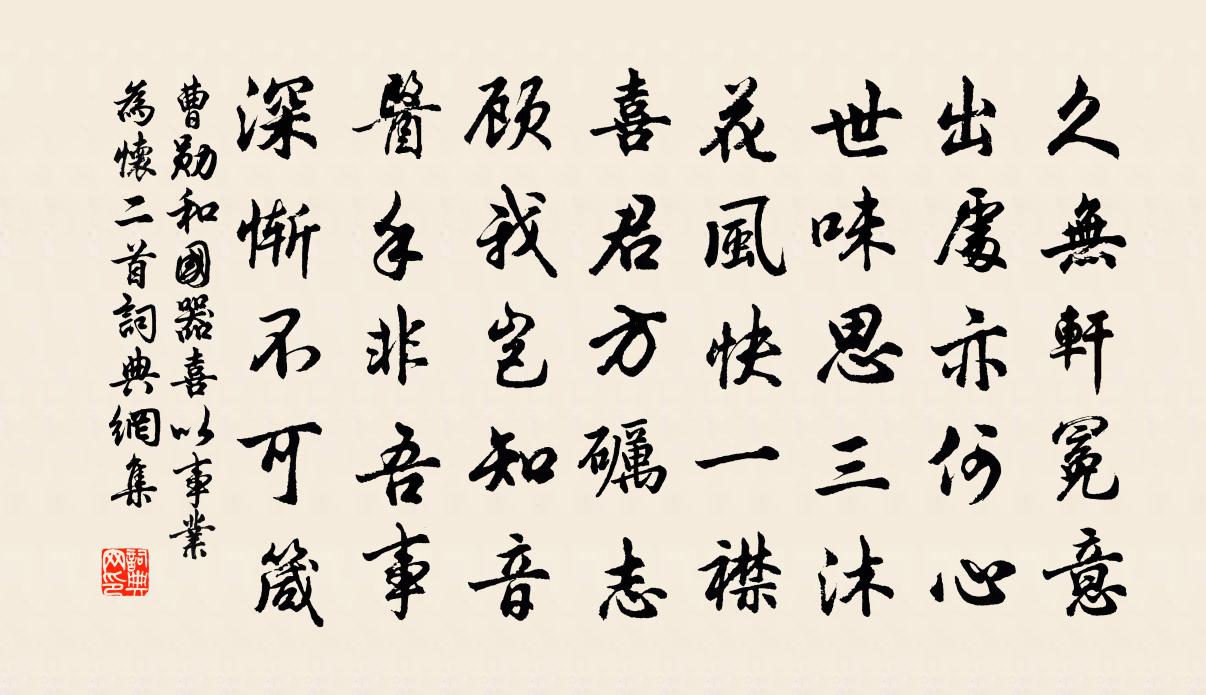 久無軒冕意
出處亦何心
世味思三沐
花風快一襟
喜君方礪志
顧我豈知音
醫手非吾事
深慚不可箴
曹勛和國器喜以事業
為懷二首詞典網集
詞典網印